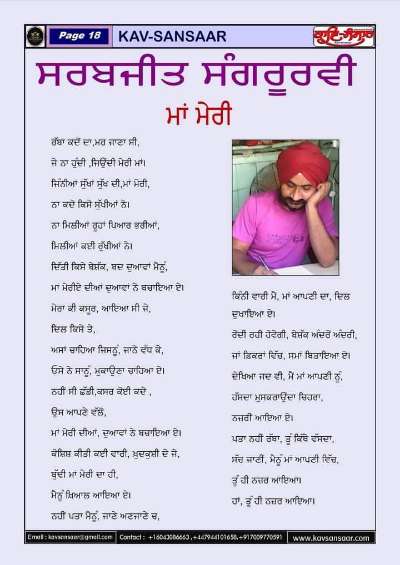 Page 18
KAV-SANSAAR
ਕਾਵਿ-ਸੰਸਾਰ
ਸਰਬਜੀਤ ਸੰਗਰੂਰਵੀ
ਮਾਂ ਮੇਰੀ
ਰੱਬਾ ਕਦੋਂ ਦਾ,ਮਰ ਜਾਣਾ ਸੀ,
ਜੇ ਨਾ ਹੁੰਦੀ ,ਜਿਉਂਦੀ ਮੇਰੀ ਮਾਂ।
ਜਿੰਨੀਆਂ ਸੁੱਖਾਂ ਸੁੱਖ ਦੀ,ਮਾਂ ਮੇਰੀ,
ਨਾ ਕਦੇ ਕਿਸੇ ਸੁੱਖੀਆਂ ਨੇ।
ਨਾ ਮਿਲੀਆਂ ਰੂਹਾਂ ਪਿਆਰ ਭਰੀਆਂ,
ਮਿਲੀਆਂ ਕਈ ਰੁੱਖੀਆਂ ਨੇ।
ਦਿੱਤੀ ਕਿਸੇ ਬੇਸ਼ੱਕ, ਬਦ ਦੁਆਵਾਂ ਮੈਨੂੰ,
ਮਾਂ ਮੇਰੀਏ ਦੀਆਂ ਦੁਆਵਾਂ ਨੇ ਬਚਾਇਆ ਏ।
ਮੇਰਾ ਕੀ ਕਸੂਰ, ਆਇਆ ਸੀ ਜੇ,
ਦਿਲ ਕਿਸੇ ਤੇ,
ਅਸਾਂ ਚਾਹਿਆ ਜਿਸਨੂੰ, ਜਾਨੋ ਵੱਧ ਕੇ,
ਓਸੇ ਨੇ ਸਾਨੂੰ, ਮੁਕਾਉਣਾ ਚਾਹਿਆ ਏ।
ਨਹੀਂ ਸੀ ਛੱਡੀ,ਕਸਰ ਕੋਈ ਕਦੇ ,
ਉਸ ਆਪਣੇ ਵੱਲੋਂ,
ਮਾਂ ਮੇਰੀ ਦੀਆਂ, ਦੁਆਵਾਂ ਨੇ ਬਚਾਇਆ ਏ।
ਕੋਸ਼ਿਸ਼ ਕੀਤੀ ਕਈ ਵਾਰੀ, ਖ਼ੁਦਕੁਸ਼ੀ ਦੇ ਜੋ,
ਬੁੱਢੀ ਮਾਂ ਮੇਰੀ ਦਾ ਹੀ,
ਮੈਨੂੰ ਖ਼ਿਆਲ ਆਇਆ ਏ।
ਨਹੀਂ ਪਤਾ ਮੈਨੂੰ, ਜਾਣੇ ਅਣਜਾਣੇ ਚ,
ਕਿੰਨੀ ਵਾਰੀ ਮੈਂ, ਮਾਂ ਆਪਣੀ ਦਾ, ਦਿਲ
ਦੁਖਾਇਆ ਏ।
ਰੋਂਦੀ ਰਹੀ ਹੋਵੇਗੀ, ਬੇਸ਼ੱਕ ਅੰਦਰੋਂ ਅੰਦਰੀ,
ਜਾਂ ਫ਼ਿਕਰਾਂ ਵਿੱਚ, ਸਮਾਂ ਬਿਤਾਇਆ ਏ।
ਦੇਖਿਆ ਜਦ ਵੀ, ਮੈਂ ਮਾਂ ਆਪਣੀ ਨੂੰ,
ਹੱਸਦਾ ਮੁਸਕਰਾਉਂਦਾ ਚਿਹਰਾ,
ਨਜ਼ਰੀਂ ਆਇਆ ਏ।
ਪਤਾ ਨਹੀਂ ਰੱਬਾ, ਤੂੰ ਕਿੱਥੇ ਵੱਸਦਾ,
ਸੱਚ ਜਾਣੀਂ, ਮੈਨੂੰ ਮਾਂ ਆਪਣੀ ਵਿੱਚ,
ਤੂੰ ਹੀ ਨਜ਼ਰ ਆਇਆ।
ਹਾਂ, ਤੂੰ ਹੀ ਨਜ਼ਰ ਆਇਆ।
Email : kavsansaar@gmail.com
Contact : +16043086663 , +447944101658, +917009770591
www.kavsansaar.com